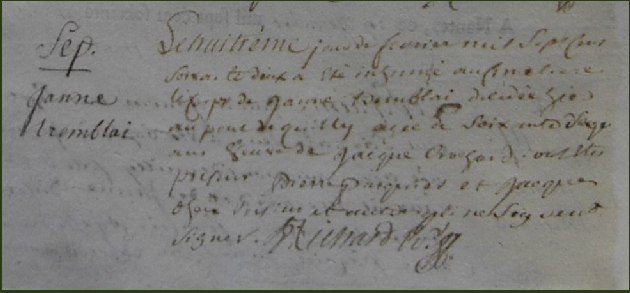 Sep.
Janne
tremblai
Le huitieme jour de fevrier mil sept cens
soixante deux a été inhumé au cimetiere
le corps de Janne tremblai decedée hier
au pont de quilly agée de soixante
ans veuve de Jacque ont été
presens Pierre et Jacque
qui ne scavent
signer. Richard